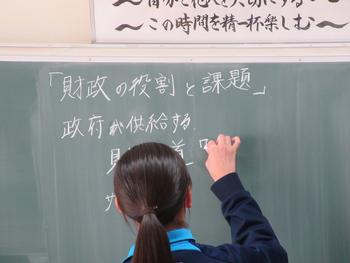 〜この時間を精一杯楽しむ〜
「財政の役割と課題」
政府が供給する
財
道